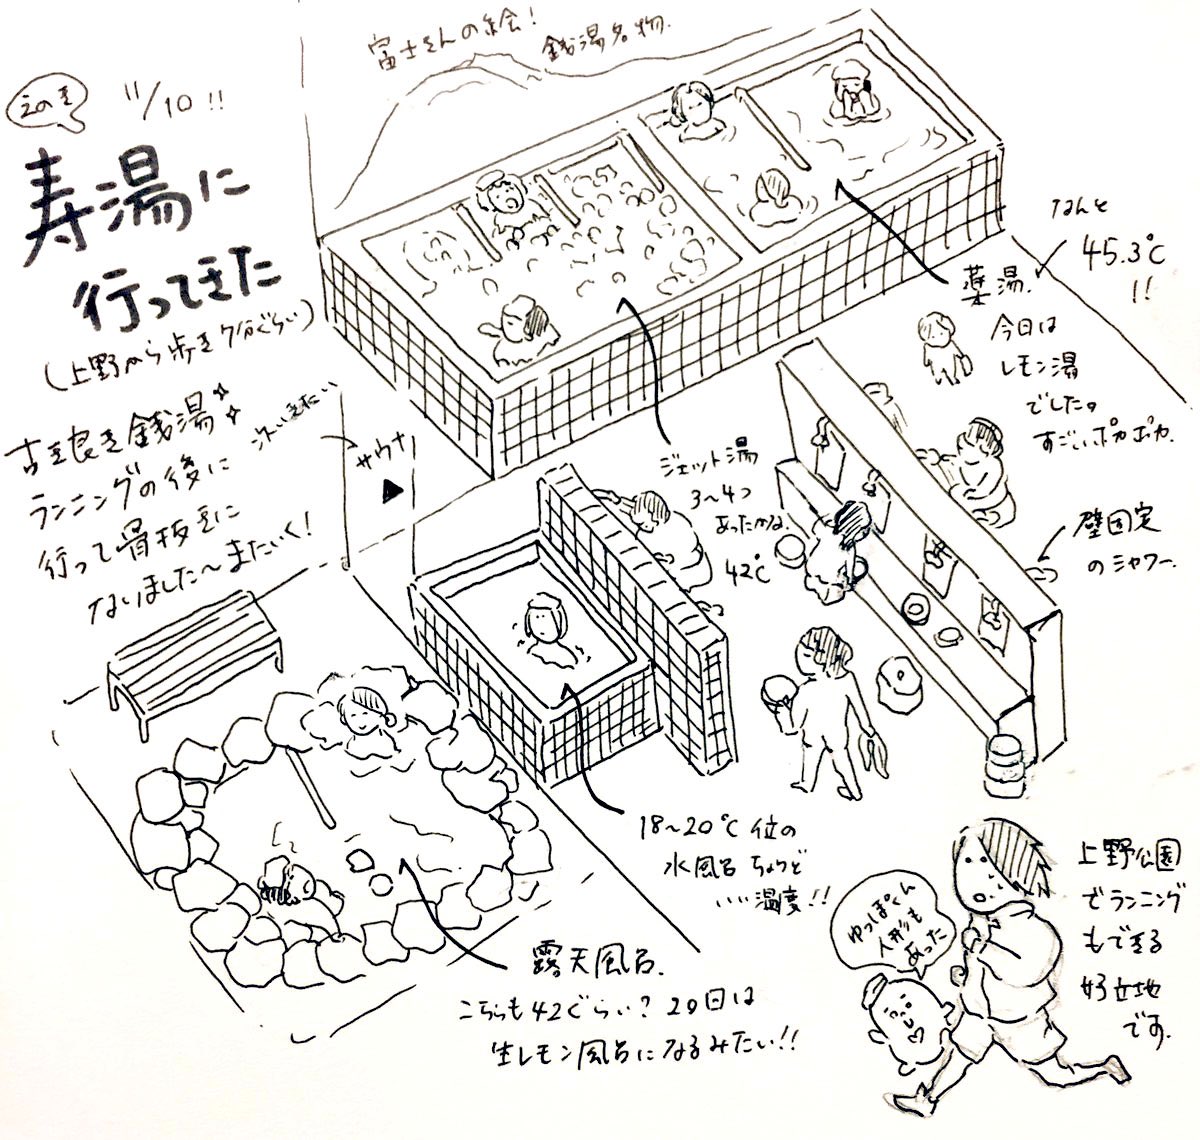 えのき
11/10!!
寿湯に
行ってきた
(上野から歩き7分ぐらい)
古き良き銭湯
ランニングの後に
行って骨抜きに
なりました〜またいく!
富士さんの絵!
銭湯名物.
サウナ
なんと
45.3℃
!!
薬湯.
今日は
レモン湯
でした。
すごいポカポカ.
ジェット湯
3〜4つ
あったかな.
42℃
壁固定
のシャワー.
18〜20℃位の
水風呂 ちょうど
いい温度!!
露天風呂.
こちらも42ぐらい?29日は
生レモン風呂になるみたい!!
ゆっぽくん
人形も
あった
上野公園
でランニング
もできる
好立地
です.